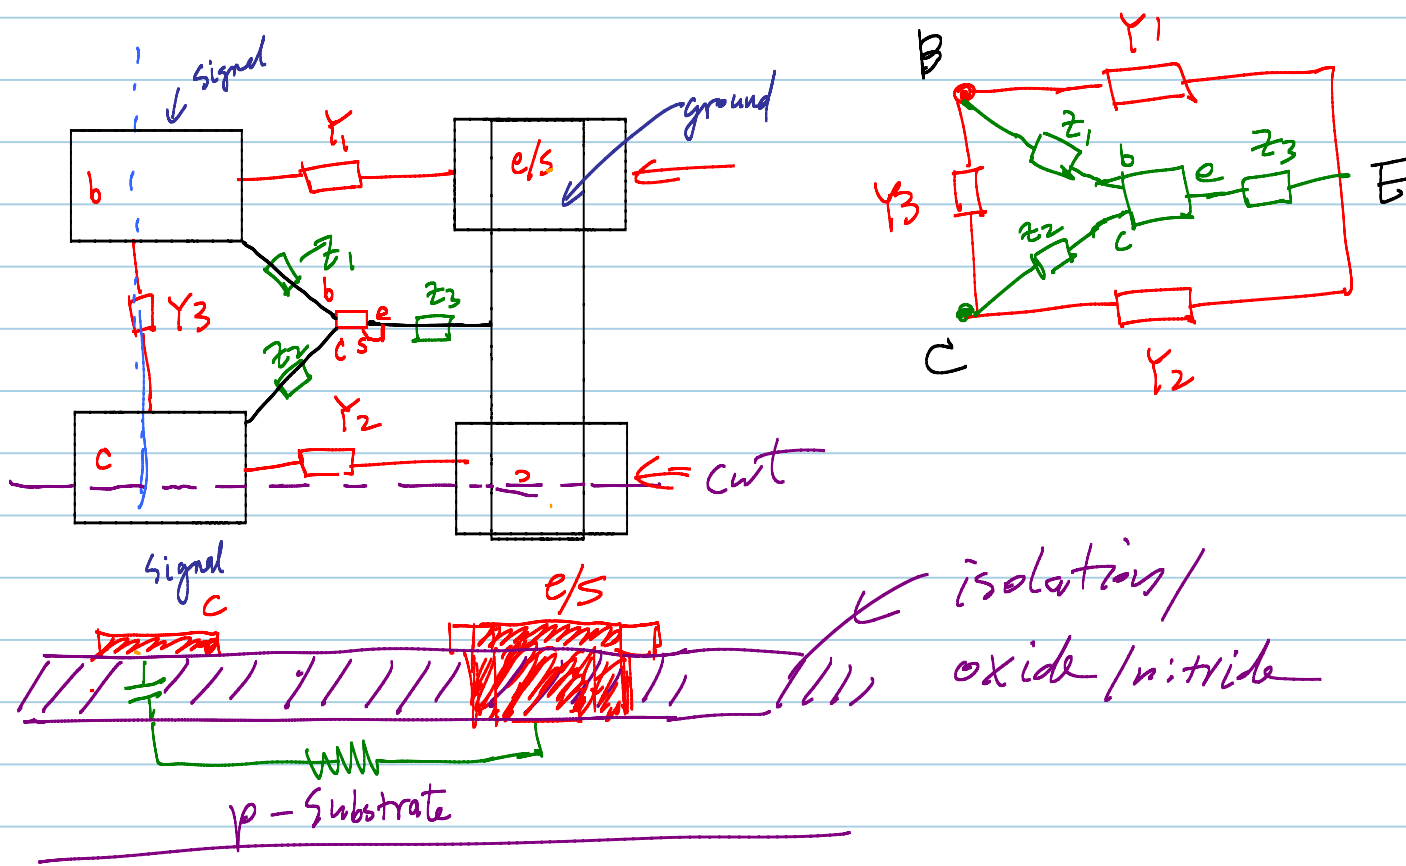 signal
b
Y1
e/s
ground
Z1
b
Y3
e
Z3
c s
Z2
Y2
c
cut
signal
B
Y1
Z1
b
e
Z3
E
Y3
Z2
c
C
Y2
c
e/s
isolation/
oxide/nitride
p-substrate